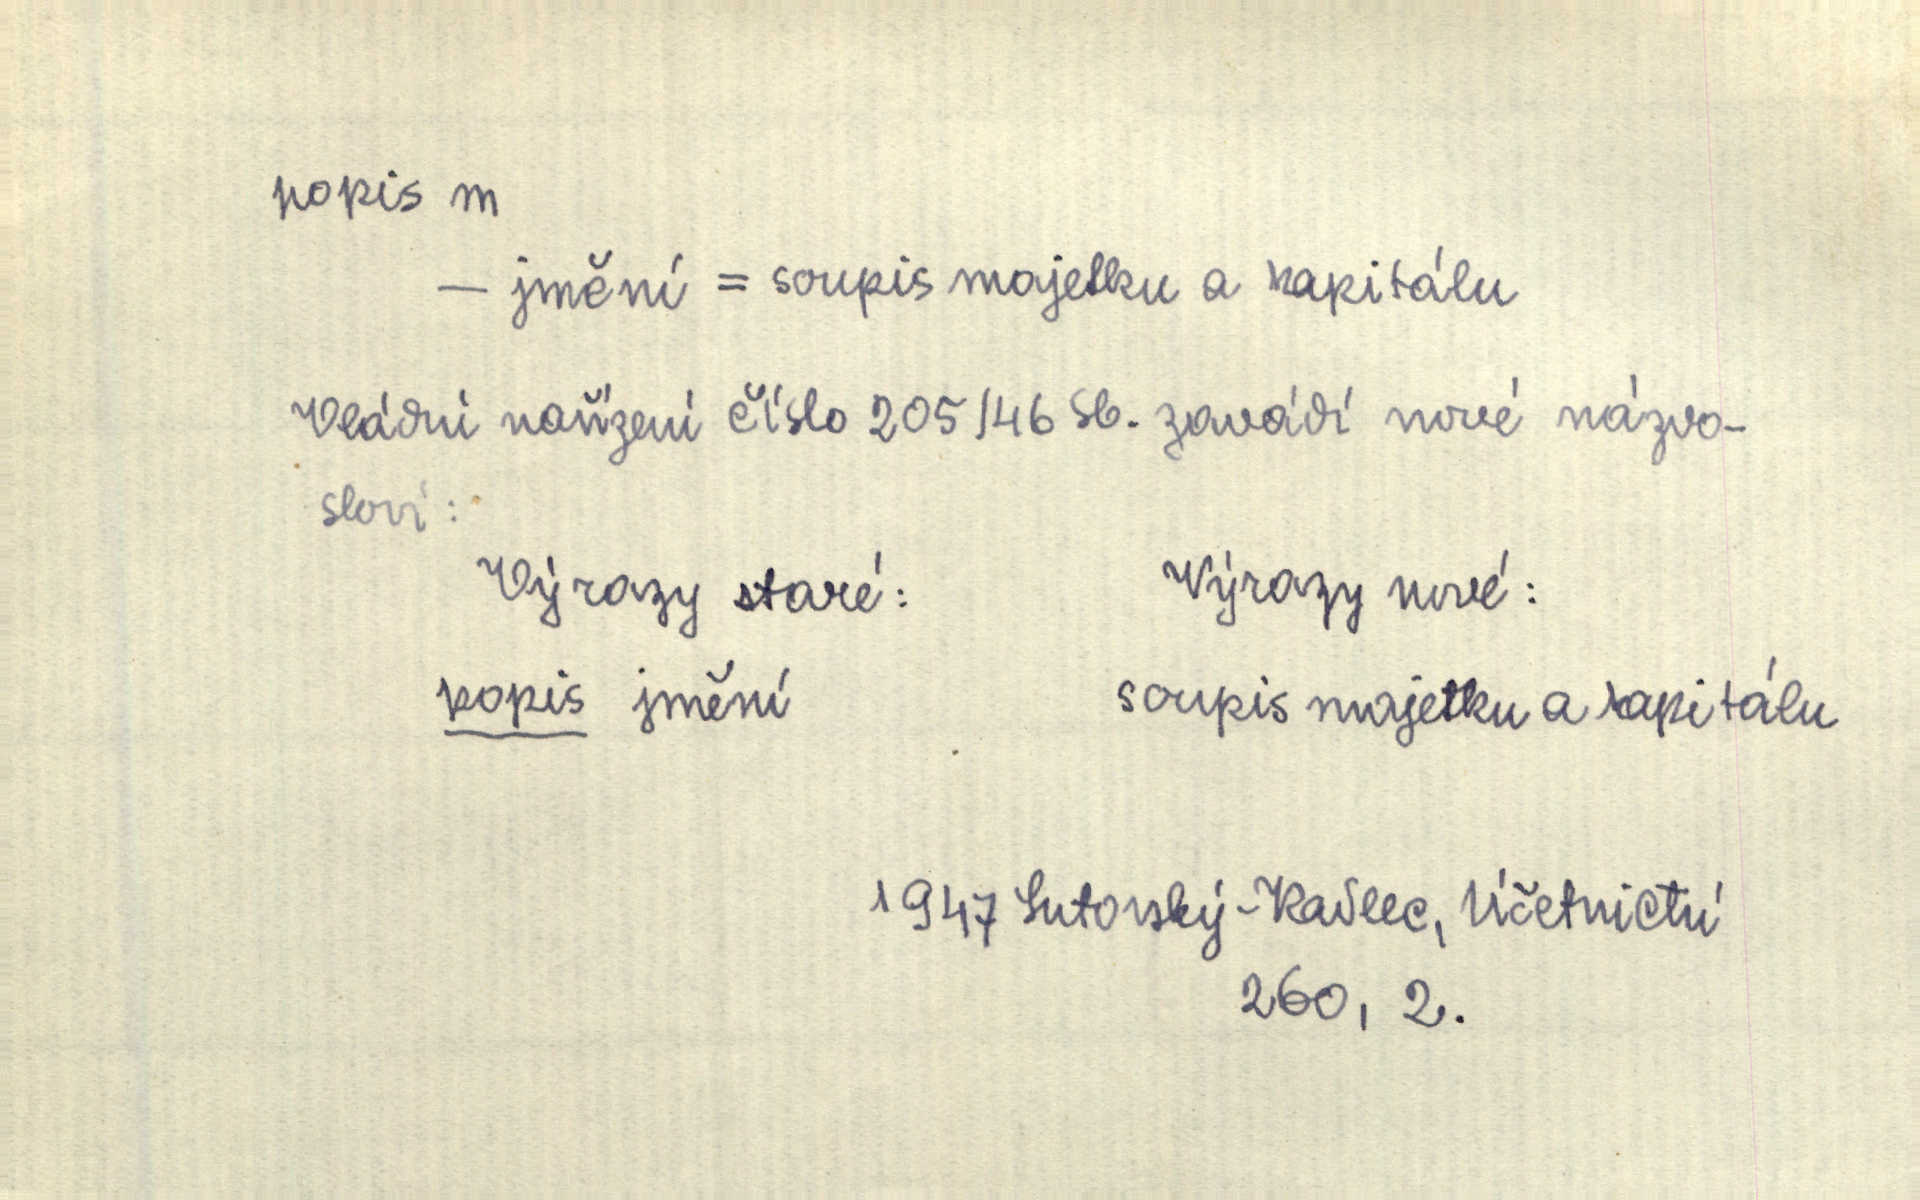 popis m
— jmění = soupis majetku a kapitálu
Vládní nařízení číslo 205/46 Sb. zavádí nové názvo-
sloví:
Výrazy staré: Výrazy nové:
popis jmění soupis majetku a kapitálu
1947 Lutovský-Kadlec, Účetnictví
260, 2.